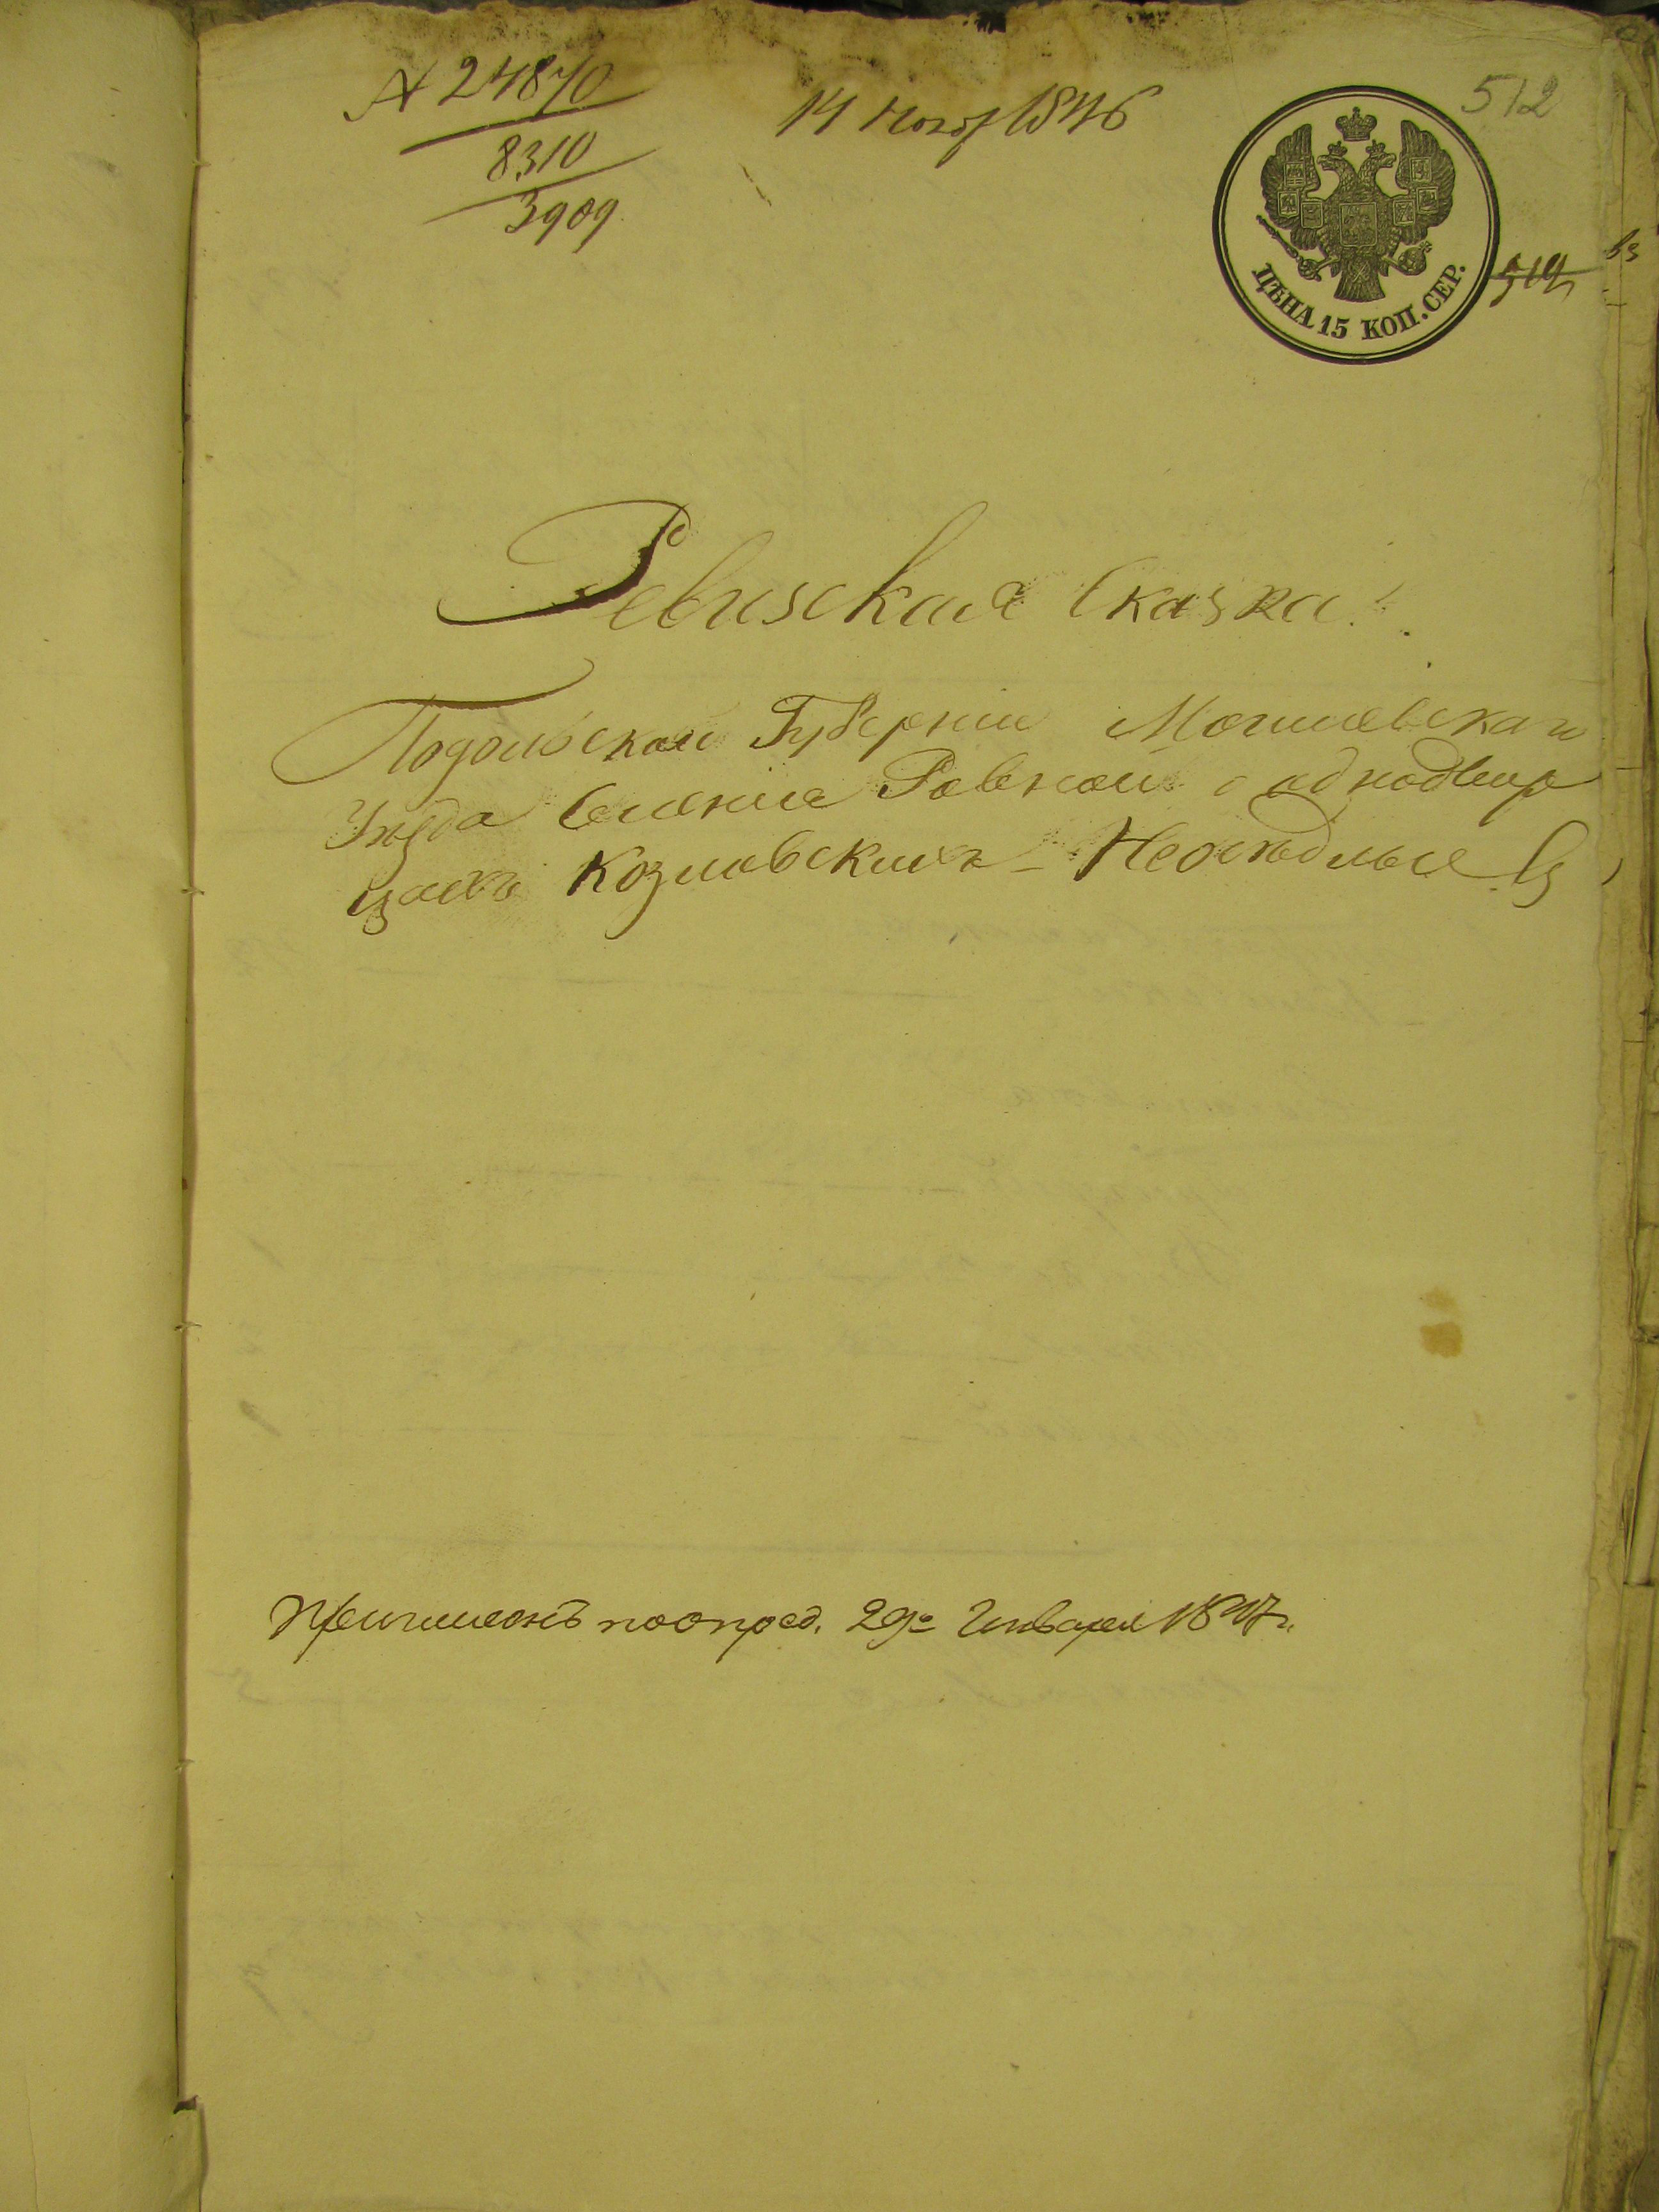 № 24870
8310
3909
14 Нояб 1846
512
ЦѢНА 15 КОП. СЕР.
519
Ревизская Сказка
Подольской Губерніи Могилевскаго
Уѣзда Селенія Ровной о однодвор
цахъ Козловскихъ - Неосѣдлые
Причисленъ по опред. 29го Января 1847 г.